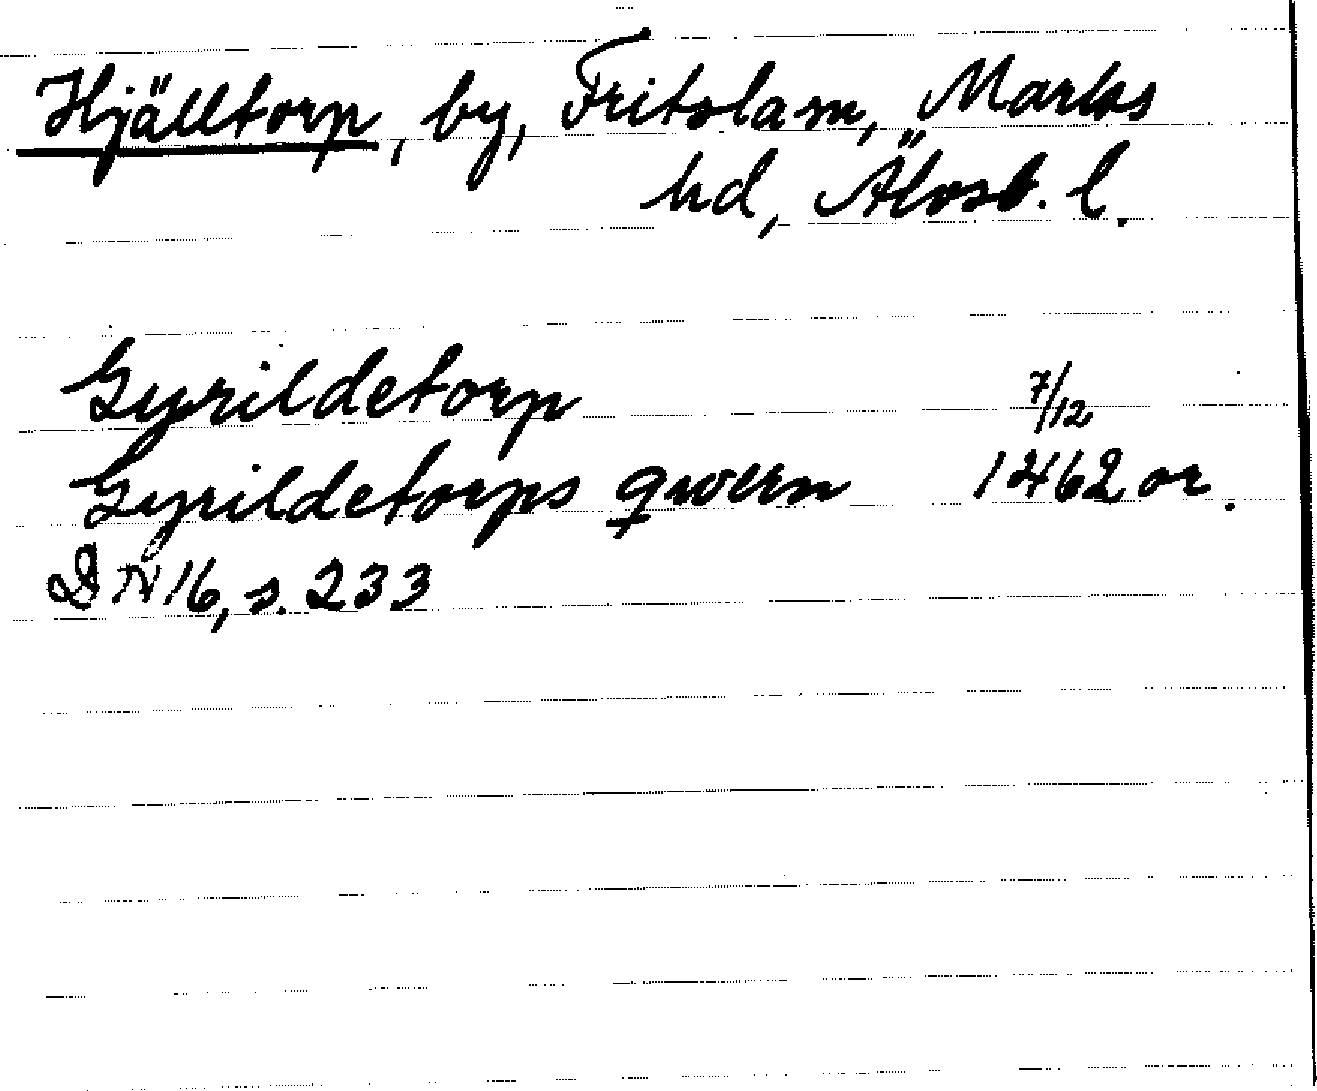 Hjälltorp, by, Fritslam, Marks
hd, Älvsb. l.
Gyrildetorp 7/12
Gyrildetorps qwern 1462 or.
DN 16, s. 233